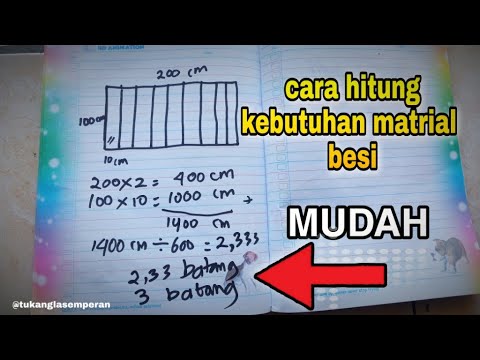 200 cm
cara hitung
kebutuhan matrial
besi
100 cm
10 cm
200 x 2 = 400 cm
100 x 10 = 1000 cm
1400 cm
MUDAH
1400 cm ÷ 600 = 2,333
2,33 batang
3 batang
@tukanglasemperan